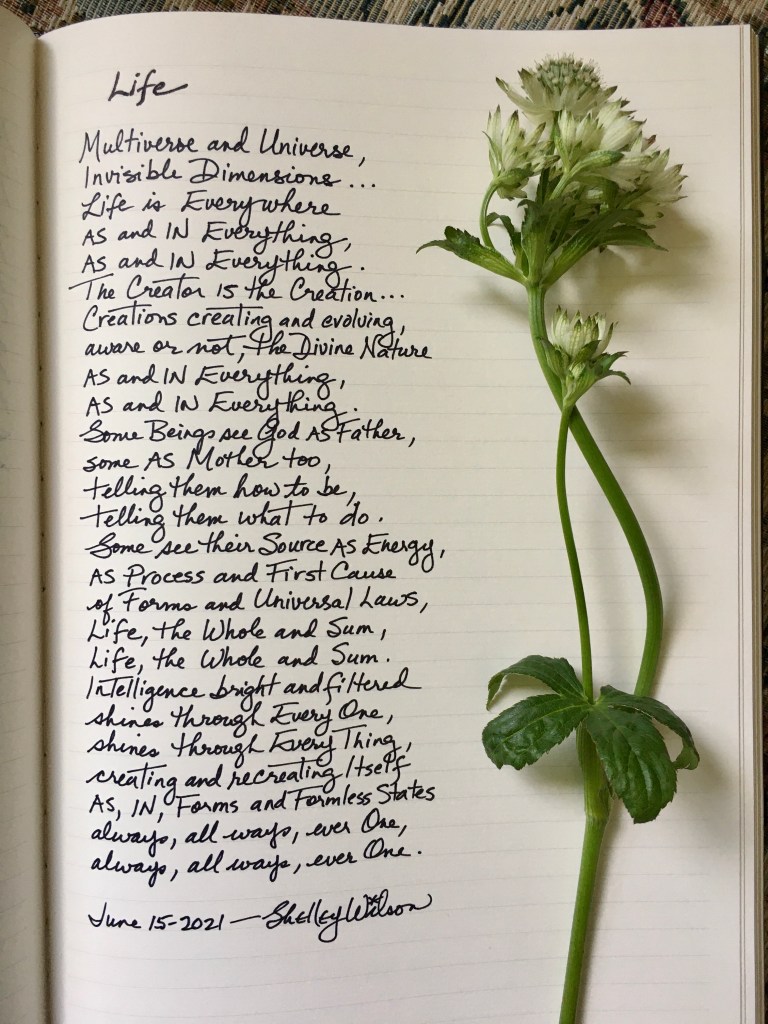 Life
Multiverse and Universe,
Invisible Dimensions...
Life is Everywhere
AS and IN Everything,
AS and IN Everything.
The Creator IS the Creation...
Creations creating and evolving,
aware or not, the Divine Nature
AS and IN Everything,
AS and IN Everything.
Some Beings see God AS Father,
some AS Mother too,
telling them how to be,
telling them what to do.
Some see their Source AS Energy,
AS Process and First Cause
of Forms and Universal Laws,
Life, the Whole and Sum,
Life, the Whole and Sum.
Intelligence bright and filtered
shines through Every One,
shines through Every Thing,
creating and recreating Itself
AS, IN, Forms and Formless States
always, all ways, ever One,
always, all ways, ever One.
June 15-2021 — Shelley Wilson